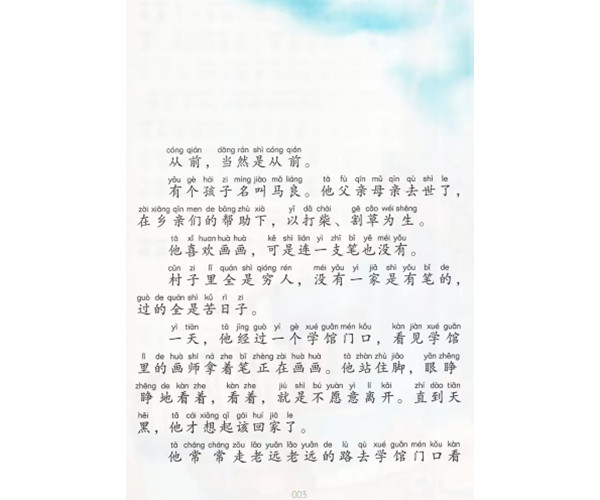 cóng qián dāng rán shì cóng qián
从前，当然是从前。
yǒu gè hái zi míng jiào mǎ liáng tā fù qīn mǔ qīn qù shì le
有个孩子名叫马良。他父亲母亲去世了，
zài xiāng qīn men de bāng zhù xià yǐ dǎ chái gē cǎo wéi shēng
在乡亲们的帮助下，以打柴、割草为生。
tā xǐ huan huà huà kě shì lián yì zhī bǐ yě méi yǒu
他喜欢画画，可是连一支笔也没有。
cūn zi lǐ quán shì qióng rén méi yǒu yì jiā shì yǒu bǐ de
村子里全是穷人，没有一家是有笔的，
guò de quán shì kǔ rì zi
过的全是苦日子。
yì tiān tā jīng guò yí gè xué guǎn mén kǒu kàn jiàn xué guǎn
一天，他经过一个学馆门口，看见学馆
lǐ de huà shī ná zhe bǐ zhèng zài huà huà tā zhàn zhù jiǎo yǎn zhēng
里的画师拿着笔正在画画。他站住脚，眼睁
zhēng de kàn zhe kàn zhe jiù shì bú yuàn yì lí kāi zhí dào tiān
睁地看着，看着，就是不愿意离开。直到天
hēi tā cái xiǎng qǐ gāi huí jiā le
黑，他才想起该回家了。
tā cháng cháng zǒu lǎo yuǎn lǎo yuǎn de lù qù xué guǎn mén kǒu kàn
他常常走老远老远的路去学馆门口看
003